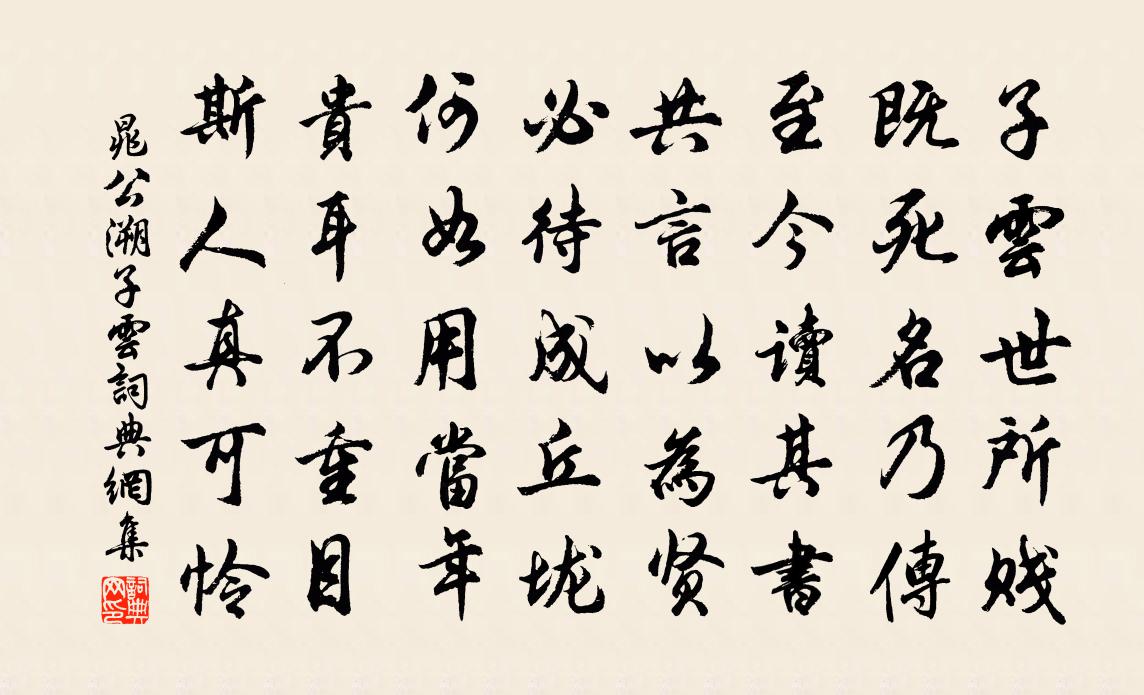 子雲世所賤
既死名乃傳
至今讀其書
共言以為贤
必待成丘垅
何如用當年
貴耳不重目
斯人真可怜
晁公溯子雲詞典網集
詞典网印